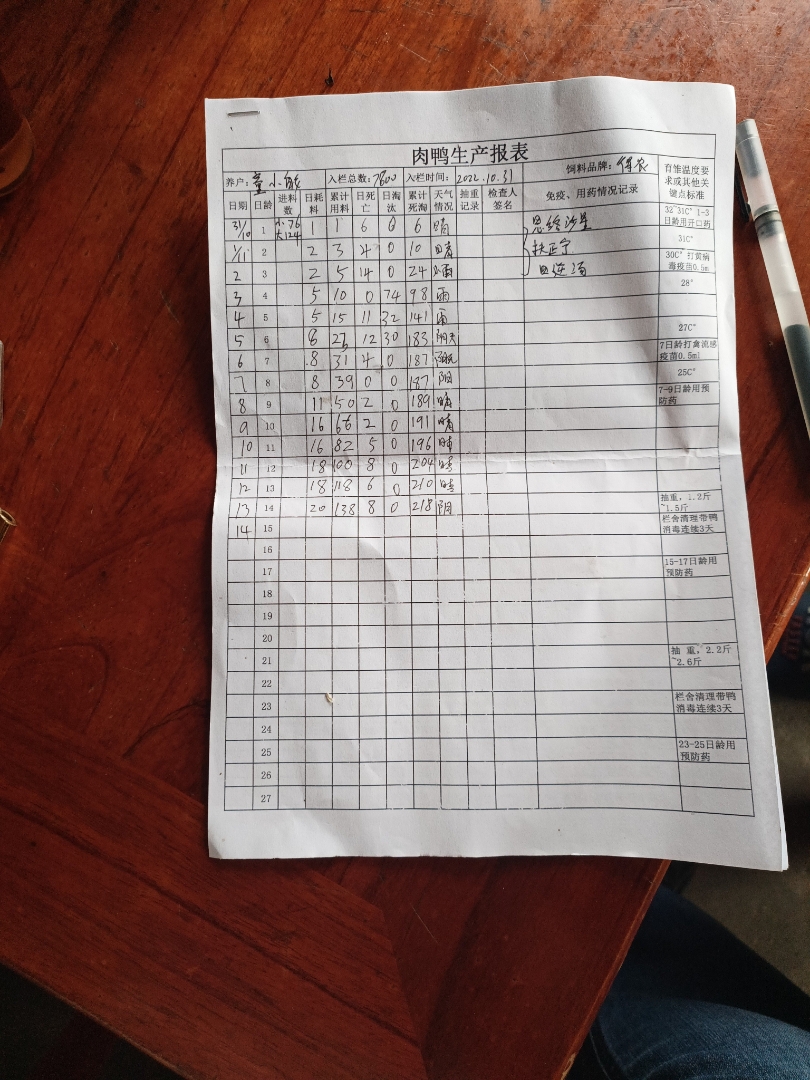 肉鸭生产报表
养户: 董小敏 入栏总数: 7800 入栏时间: 2022.10.31 饲料品牌: 得农 育雏温度要求或其他关键点标准
日期 日龄 进料数 日耗料 累计用料 日死亡 日淘汰 累计死淘 天气情况 抽重记录 检查人签名 免疫、用药情况记录
31/10 1 小76 大124 1 1 6 0 6 晴 恩给沙星 32°31C° 1-3日龄用开口药
1/11 2 2 3 4 0 10 晴 扶正宁 31C°
2 3 2 5 14 0 24 小雨 30C° 打黄病毒疫苗0.5m
3 4 5 10 0 74 98 雨 28°
4 5 5 15 11 32 141 雨
5 6 8 23 12 30 183 阴天 27C°
6 7 8 31 4 0 187 7日龄打禽流感疫苗0.5ml
7 8 8 39 0 0 187 阴 25C°
8 9 11 50 2 0 189 晴 7-9日龄用预防药
9 10 16 66 2 0 191 晴
10 11 16 82 5 0 196 晴
11 12 18 100 8 0 204 晴
12 13 18 118 6 0 210 晴
13 14 20 138 8 0 218 阴 抽重，1.2斤~1.5斤
14 15 栏舍清理带鸭消毒连续3天
16
17 15-17日龄用预防药
18
19
20
21 抽 重，2.2斤~2.6斤
22
23 栏舍清理带鸭消毒连续3天
24
25 23-25日龄用预防药
26
27